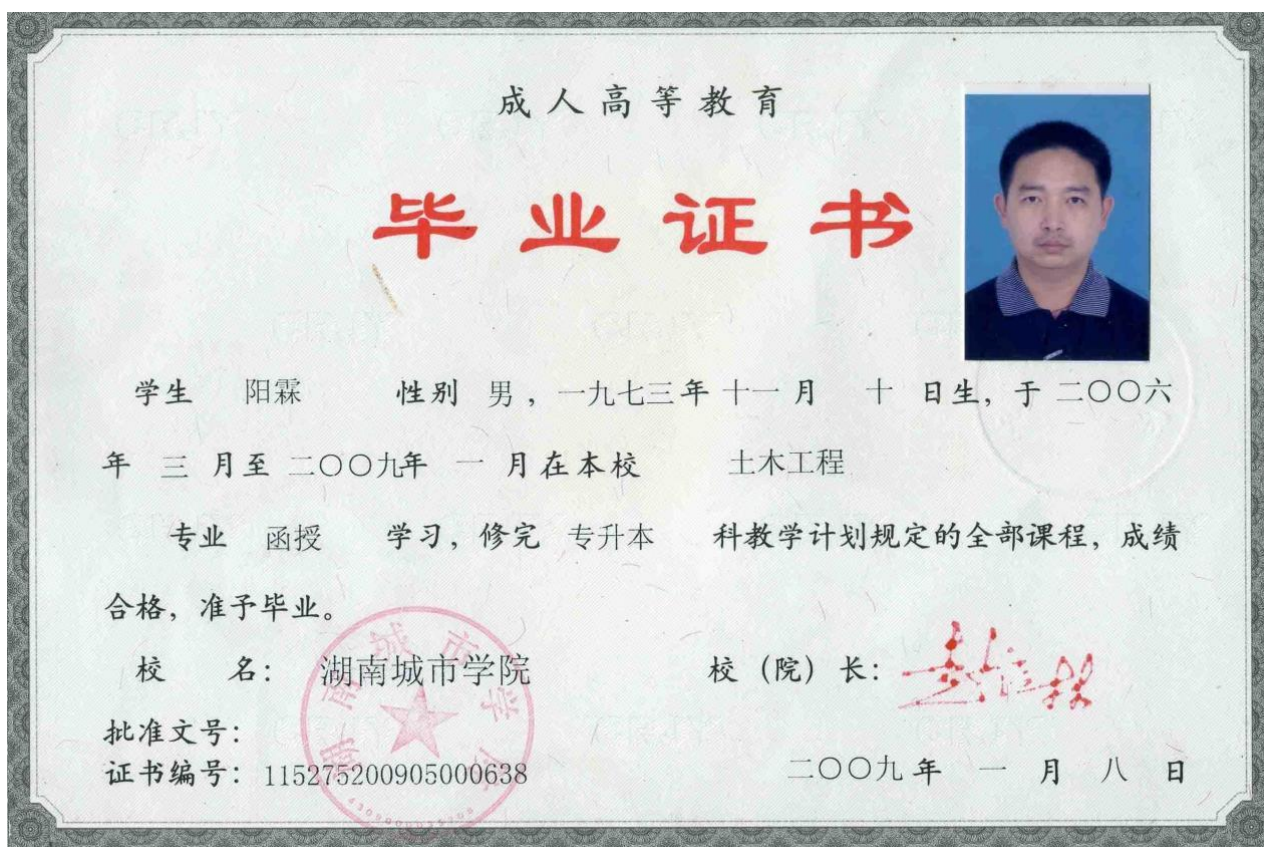 成人高等教育
毕业证书
学生 阳霖 性别 男，一九七三年 十一 月 十 日生，于 二〇〇六
年 三 月至 二〇〇九年 一 月在本校 土木工程
专业 函授 学习，修完 专升本 科教学计划规定的全部课程，成绩
合格，准予毕业。
校 名： 湖南城市学院 校（院）长：
批准文号：
证书编号：115275200905000638 二〇〇九年 一 月 八 日
湖南城市学院